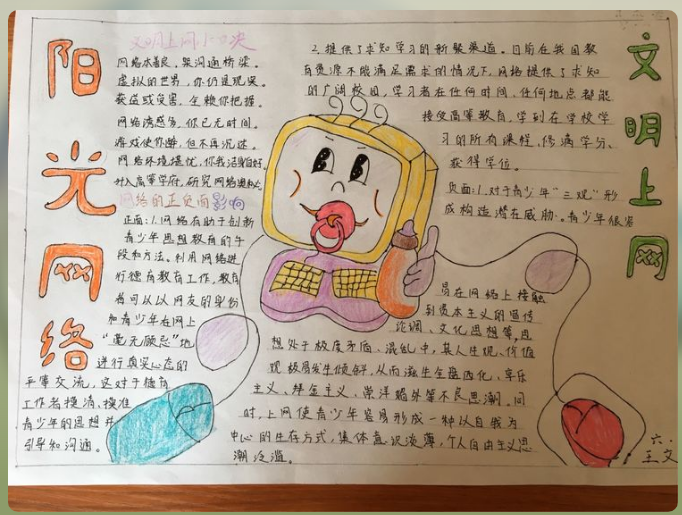 阳光网络
文明上网小口诀
网络本善良，架沟通桥梁。
虚拟的世界，你仍是现实。
获益或受害，全赖你把握。
网络诱惑多，你已无时间。
游戏使你醉，但不再沉迷。
网络环境堪忧，你我洁身自好。
升入高等学府，研究网络奥秘。
网络的正负面影响
正面：1.网络有助于创新
青少年思想教育的手
段和方法。利用网络进
行德育教育工作，教育
者可以以网友的身份
和青少年在网上
“毫无顾忌”地
进行真实心态的
平等交流，这对于德育
工作者摸清、摸准
青少年的思想并
引导和沟通。
2.提供了求知学习的新渠道。目前在我国教
育资源不能满足需求的情况下，网络提供了求知
的广阔校园，学习者在任何时间、任何地点都能
接受高等教育，学到在校学
习的所有课程、修满学分、
获得学位。
负面：1.对于青少年“三观”形
成构造潜在威胁。青少年很容
易在网络上接触
到资本主义的宣传
论调、文化思想等，思
想处于极度矛盾、混乱中，其人生观、价值
观极易发生倾斜，从而滋生全盘西化、享乐
主义、拜金主义、崇洋媚外等不良思潮。同
时，上网使青少年容易形成一种以自我为
中心的生存方式，集体意识淡薄，个人自由主义思
潮泛滥。
文明上网
六.
王文